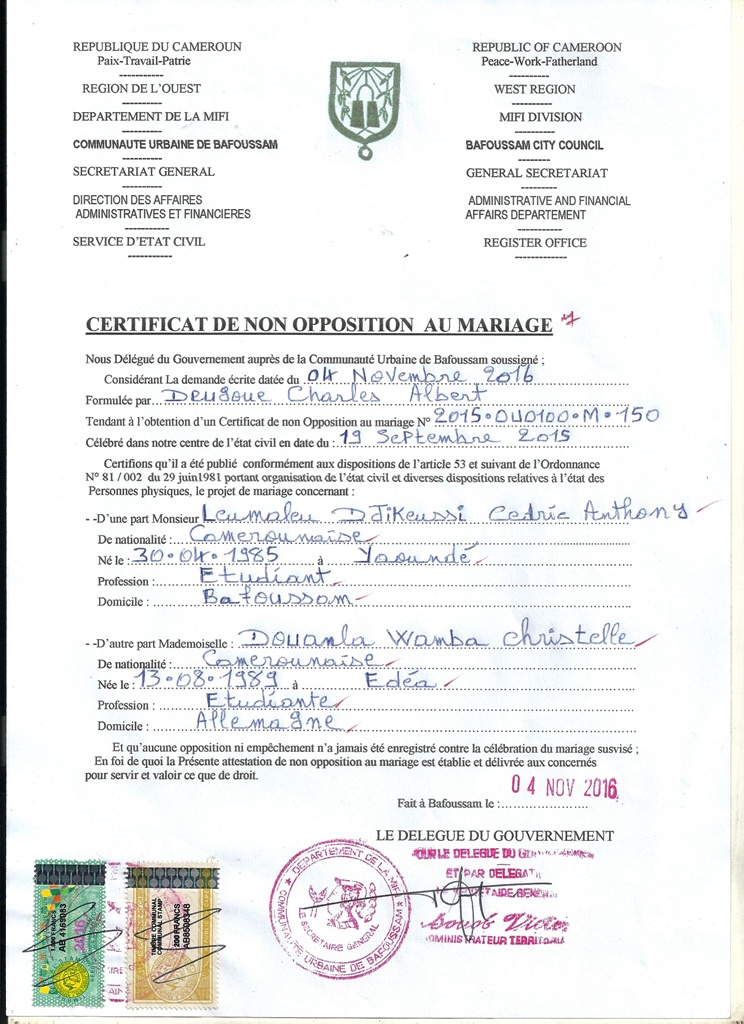 REPUBLIQUE DU CAMEROUN
Paix-Travail-Patrie
-----------
REGION DE L'OUEST
----------
DEPARTEMENT DE LA MIFI
----------
COMMUNAUTE URBAINE DE BAFOUSSAM
----------
SECRETARIAT GENERAL
----------
DIRECTION DES AFFAIRES
ADMINISTRATIVES ET FINANCIERES
-----------
SERVICE D'ETAT CIVIL
-----------
REPUBLIC OF CAMEROON
Peace-Work-Fatherland
----------
WEST REGION
----------
MIFI DIVISION
----------
BAFOUSSAM CITY COUNCIL
--------
GENERAL SECRETARIAT
---------
ADMINISTRATIVE AND FINANCIAL
AFFAIRS DEPARTEMENT
----------
REGISTER OFFICE
-------------
CERTIFICAT DE NON OPPOSITION AU MARIAGE
Nous Délégué du Gouvernement auprès de la Communauté Urbaine de Bafoussam soussigné ;
Considérant La demande écrite datée du 04 Novembre 2016
Formulée par Charles Albert
Tendant à l'obtention d'un Certificat de non Opposition au mariage N° 2015.OU0100.M.150
Célébré dans notre centre de l'état civil en date du : 19 Septembre 2015
Certifions qu'il a été publié conformément aux dispositions de l'article 53 et suivant de l'Ordonnance
N° 81 / 002 du 29 juin1981 portant organisation de l'état civil et diverses dispositions relatives à l'état des
Personnes physiques, le projet de mariage concernant :
- -D'une part Monsieur Leumaleu Djikeussi Cedric Anthony
De nationalité : Camerounaise
Né le : 30.04.1985 à Yaoundé
Profession : Etudiant
Domicile : Bafoussam
- -D'autre part Mademoiselle : Douanla Wamba Christelle
De nationalité : Camerounaise
Née le : 13.08.1989 à Edéa
Profession : Etudiante
Domicile : Allemagne
Et qu'aucune opposition ni empêchement n'a jamais été enregistré contre la célébration du mariage susvisé ;
En foi de quoi la Présente attestation de non opposition au mariage est établie et délivrée aux concernés
pour servir et valoir ce que de droit.
04 NOV 2016
Fait à Bafoussam le :
LE DELEGUE DU GOUVERNEMENT
LE DELEGUE DU
ET PAR DELEGAT
DEPARTEMENT DE LA MIFI
COMMUNAUTE URBAINE DE BAFOUSSAM
LE SECRETAIRE GENERAL
FRANCS
2016
TIMBRE COMMUNAL
COMMUNAL STAMP
200 FRANCS